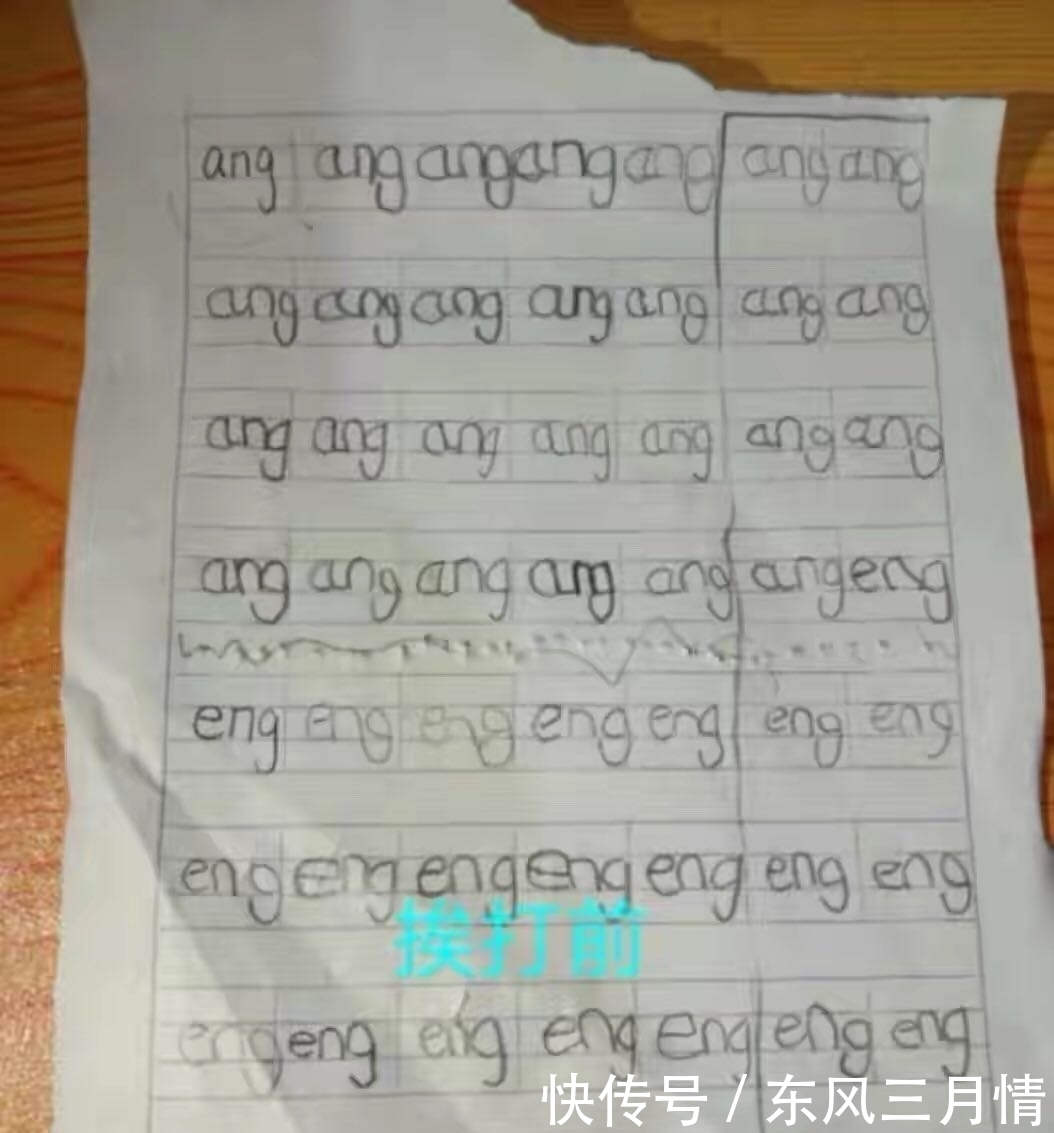 ang ang ang ang ang ang ang
ang ang ang ang ang ang ang
ang ang ang ang ang ang ang
ang ang ang ang ang ang eng
eng eng eng eng eng eng eng
eng eng eng eng eng eng eng
挨打前
eng eng eng eng eng eng eng
快传号/东风三月情